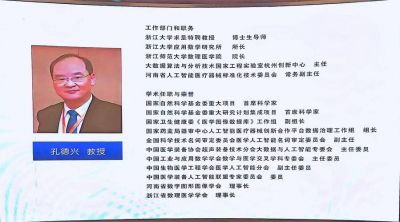 工作部门和职务
浙江大学求是特聘教授 博士生导师
浙江大学应用数学研究所 所长
浙江师范大学数理医学院 院长
大数据算法与分析技术国家工程实验室杭州创新中心 主任
河南省人工智能医疗器械标准化技术委员会 常务副主任
学术任职与荣誉
国家自然科学基金委重大项目 首席科学家
国家自然科学基金委重大研究计划集成项目 首席科学家
国家卫生健康委《医学图像数据库》工作组 副组长
国家药监局器审中心人工智能医疗器械创新合作平台数据治理工作组 组长
全国科学技术名词审定委员会医学人工智能名词审定委员会 副主任
中国医学装备协会超声装备技术分会大数据与人工智能专委会 主任委员
中国工业与应用数学学会数学与医学交叉学科专委会 主任委员
中国生物医学工程学会医学人工智能分会 副主任委员
中国医学装备人工智能联盟专家委员会 委员
河南省数字图形图像学会 理事长
浙江省数理医学学会 理事长
孔德兴 教授